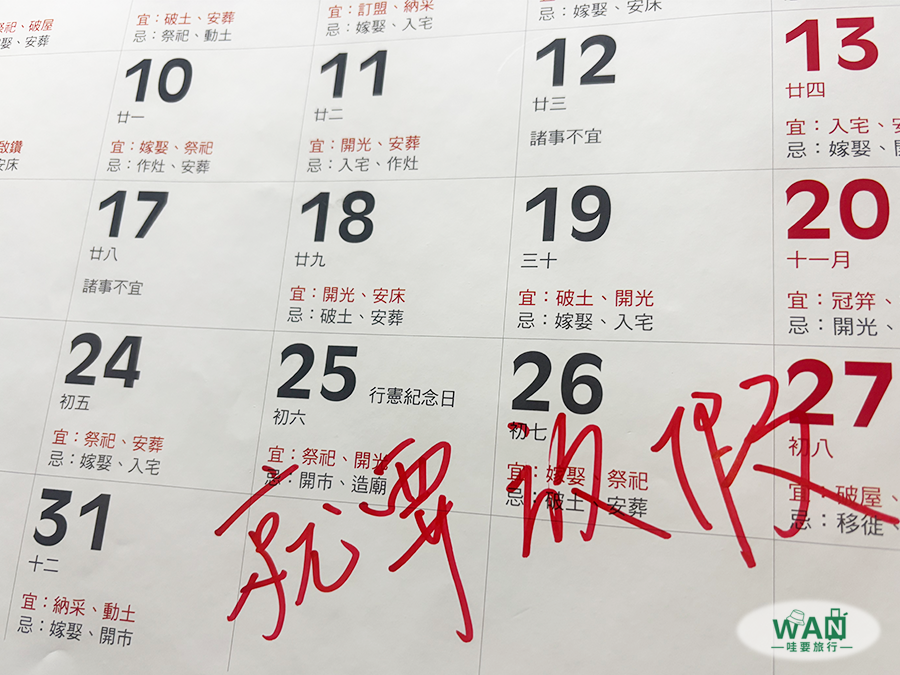 祭祀、破屋
嫁娶、安葬
宜：破土、安葬
忌：祭祀、動土
宜：訂盟、納采
忌：嫁娶、入宅
忌：嫁娶、安床
10
廿一
宜：嫁娶、祭祀
忌：作灶、安葬
11
廿二
宜：開光、安葬
忌：入宅、作灶
12
廿三
諸事不宜
13
廿四
宜：入宅、安
忌：嫁娶、開
啟鑽
安床
17
廿八
諸事不宜
18
廿九
宜：開光、安床
忌：破土、安葬
19
三十
宜：破土、開光
忌：嫁娶、入宅
20
十一月
宜：冠笄、
忌：開光、
24
初五
宜：祭祀、安葬
忌：嫁娶、入宅
25 行憲紀念日
初六
宜：祭祀、開光
忌：開市、造廟
26
初七
宜：嫁娶、祭祀
忌：破土、安葬
27
初八
宜：破屋、
忌：移徙、
就要放假
31
十二
宜：納采、動土
忌：嫁娶、開市
WAN
哇要旅行